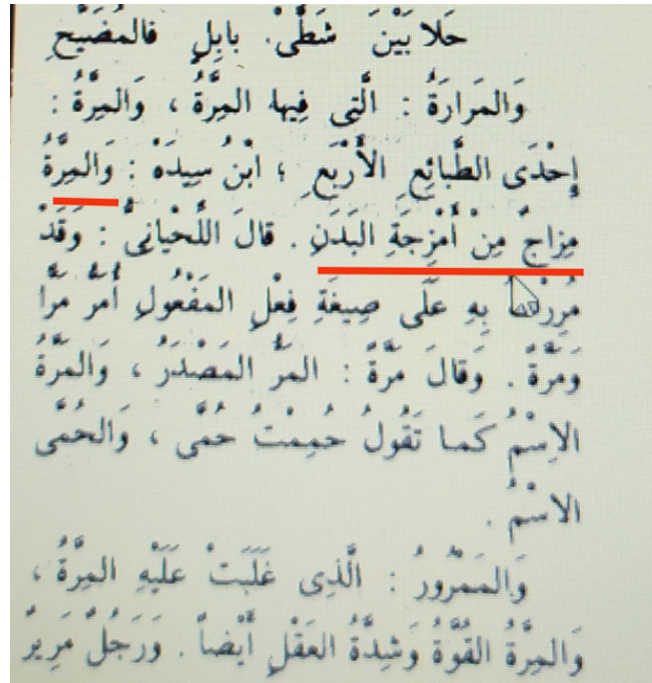 حَلا بَيْنَ شَطَّىْ. بابِلٍ فالمُضَيَّحِ
وَالمَرارَةُ : الَّتِى فِيها المِرَّةُ ، وَالمِرَّةُ :
إِحْدَى الطَّبائِعِ الأَرْبَعِ ؛ ابْنُ سِيدَهْ : وَالمِرَّةُ
مِزاجٌ مِنْ أَمْزِجَةِ البَدَنِ . قالَ اللِّحْيانِىُّ : وَقَدْ
مُرِرْتُ بِهِ عَلَى صِيغَةِ فِعْلِ المَفْعُولِ أُمَرُّ مَرًّا
وَمَرَّةً . وَقالَ مَرَّةً : المَرُّ المَصْدَرُ ، وَالمَرَّةُ
الاِسْمُ كَما تَقُولُ حُمِمْتُ حُمَّى ، وَالحُمَّى
الاسْمُ .
وَالمَمْرُورُ : الَّذِى غَلَبَتْ عَلَيْهِ المِرَّةُ ،
وَالمِرَّةُ القُوَّةُ وَشِدَّةُ العَقْلِ أَيْضاً . وَرَجُلٌ مَرِيرٌ